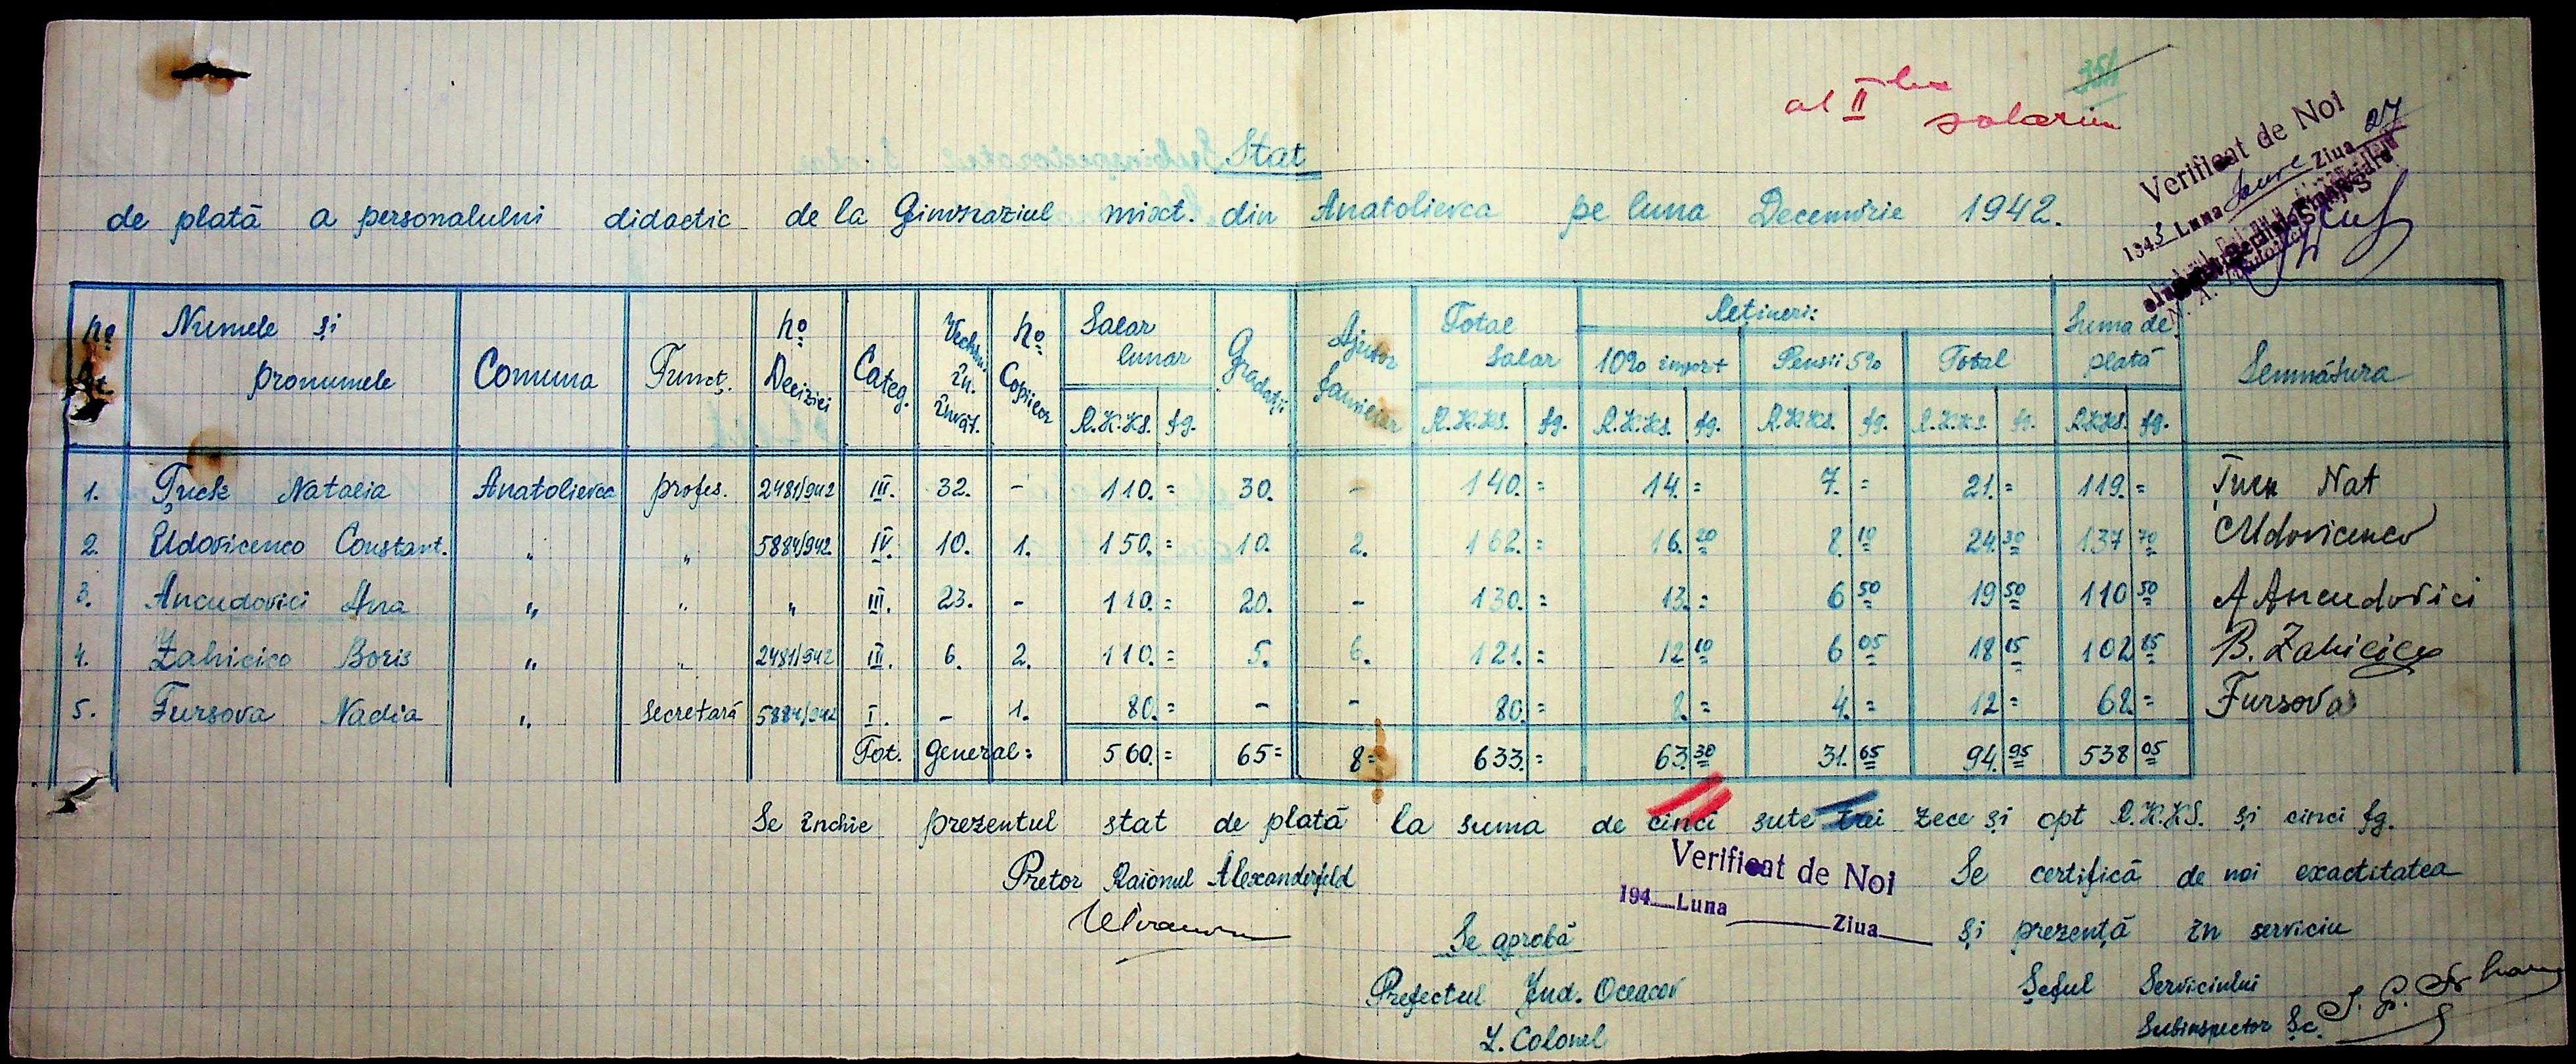 al II lea
salariu
351
Verificat de Noi
1943 Luna Ziua 27
Stat
de plată a personalului didactic de la Gimnaziul mixt. din Anatolievca pe luna Decembrie 1942.
No Numele și pronumele Comuna Funcț. No Deciziei Categ. Vechime în învăț. No Copiilor Salar lunar Gradații Ajutor familiar Total Salar Rețineri: Suma de plată Semnătura
10% impozit Pensii 5% Total
R.K.KS. fg. R.K.KS. fg. R.K.KS. fg. R.K.KS. fg. R.K.KS. fg. R.K.KS. fg.
1. Țuck Natalia Anatolievca profes. 2481/942 III. 32. - 110.= 30. - 140.= 14.= 7.= 21.= 119.= Țuck Nat
2. Udovicenco Constant. " " 5884/942 IV. 10. 1. 150.= 10. 2. 162.= 16.20 8.10 24.30 137 70 CUdovicenco
3. Ancudovici Ana " " " III. 23. - 110.= 20. - 130.= 13.= 6 50 19 50 110 50 A Ancudovici
4. Zahicico Boris " " 2481/942 III. 6. 2. 110.= 5. 6. 121.= 12 10 6 05 18 15 102 85 B. Zahicico
5. Fursova Nadia " secretară 5884/942 I. - 1. 80.= - - 80.= 8.= 4.= 12 = 68.= Fursova
Tot. general: 560.= 65= 8= 633.= 63.30 31.65 94.95 538 05
Se închie prezentul stat de plată la suma de cinci sute trei zece și opt R.K.KS. și cinci fg.
Pretor Raionul Alexanderfeld
Verificat de Noi
194 Luna Ziua
Se certifică de noi exactitatea
și prezență în serviciu
Se aprobă
Prefectul Jud. Oceacov
L. Colonel
Șeful Serviciului
Subinspector Șc.